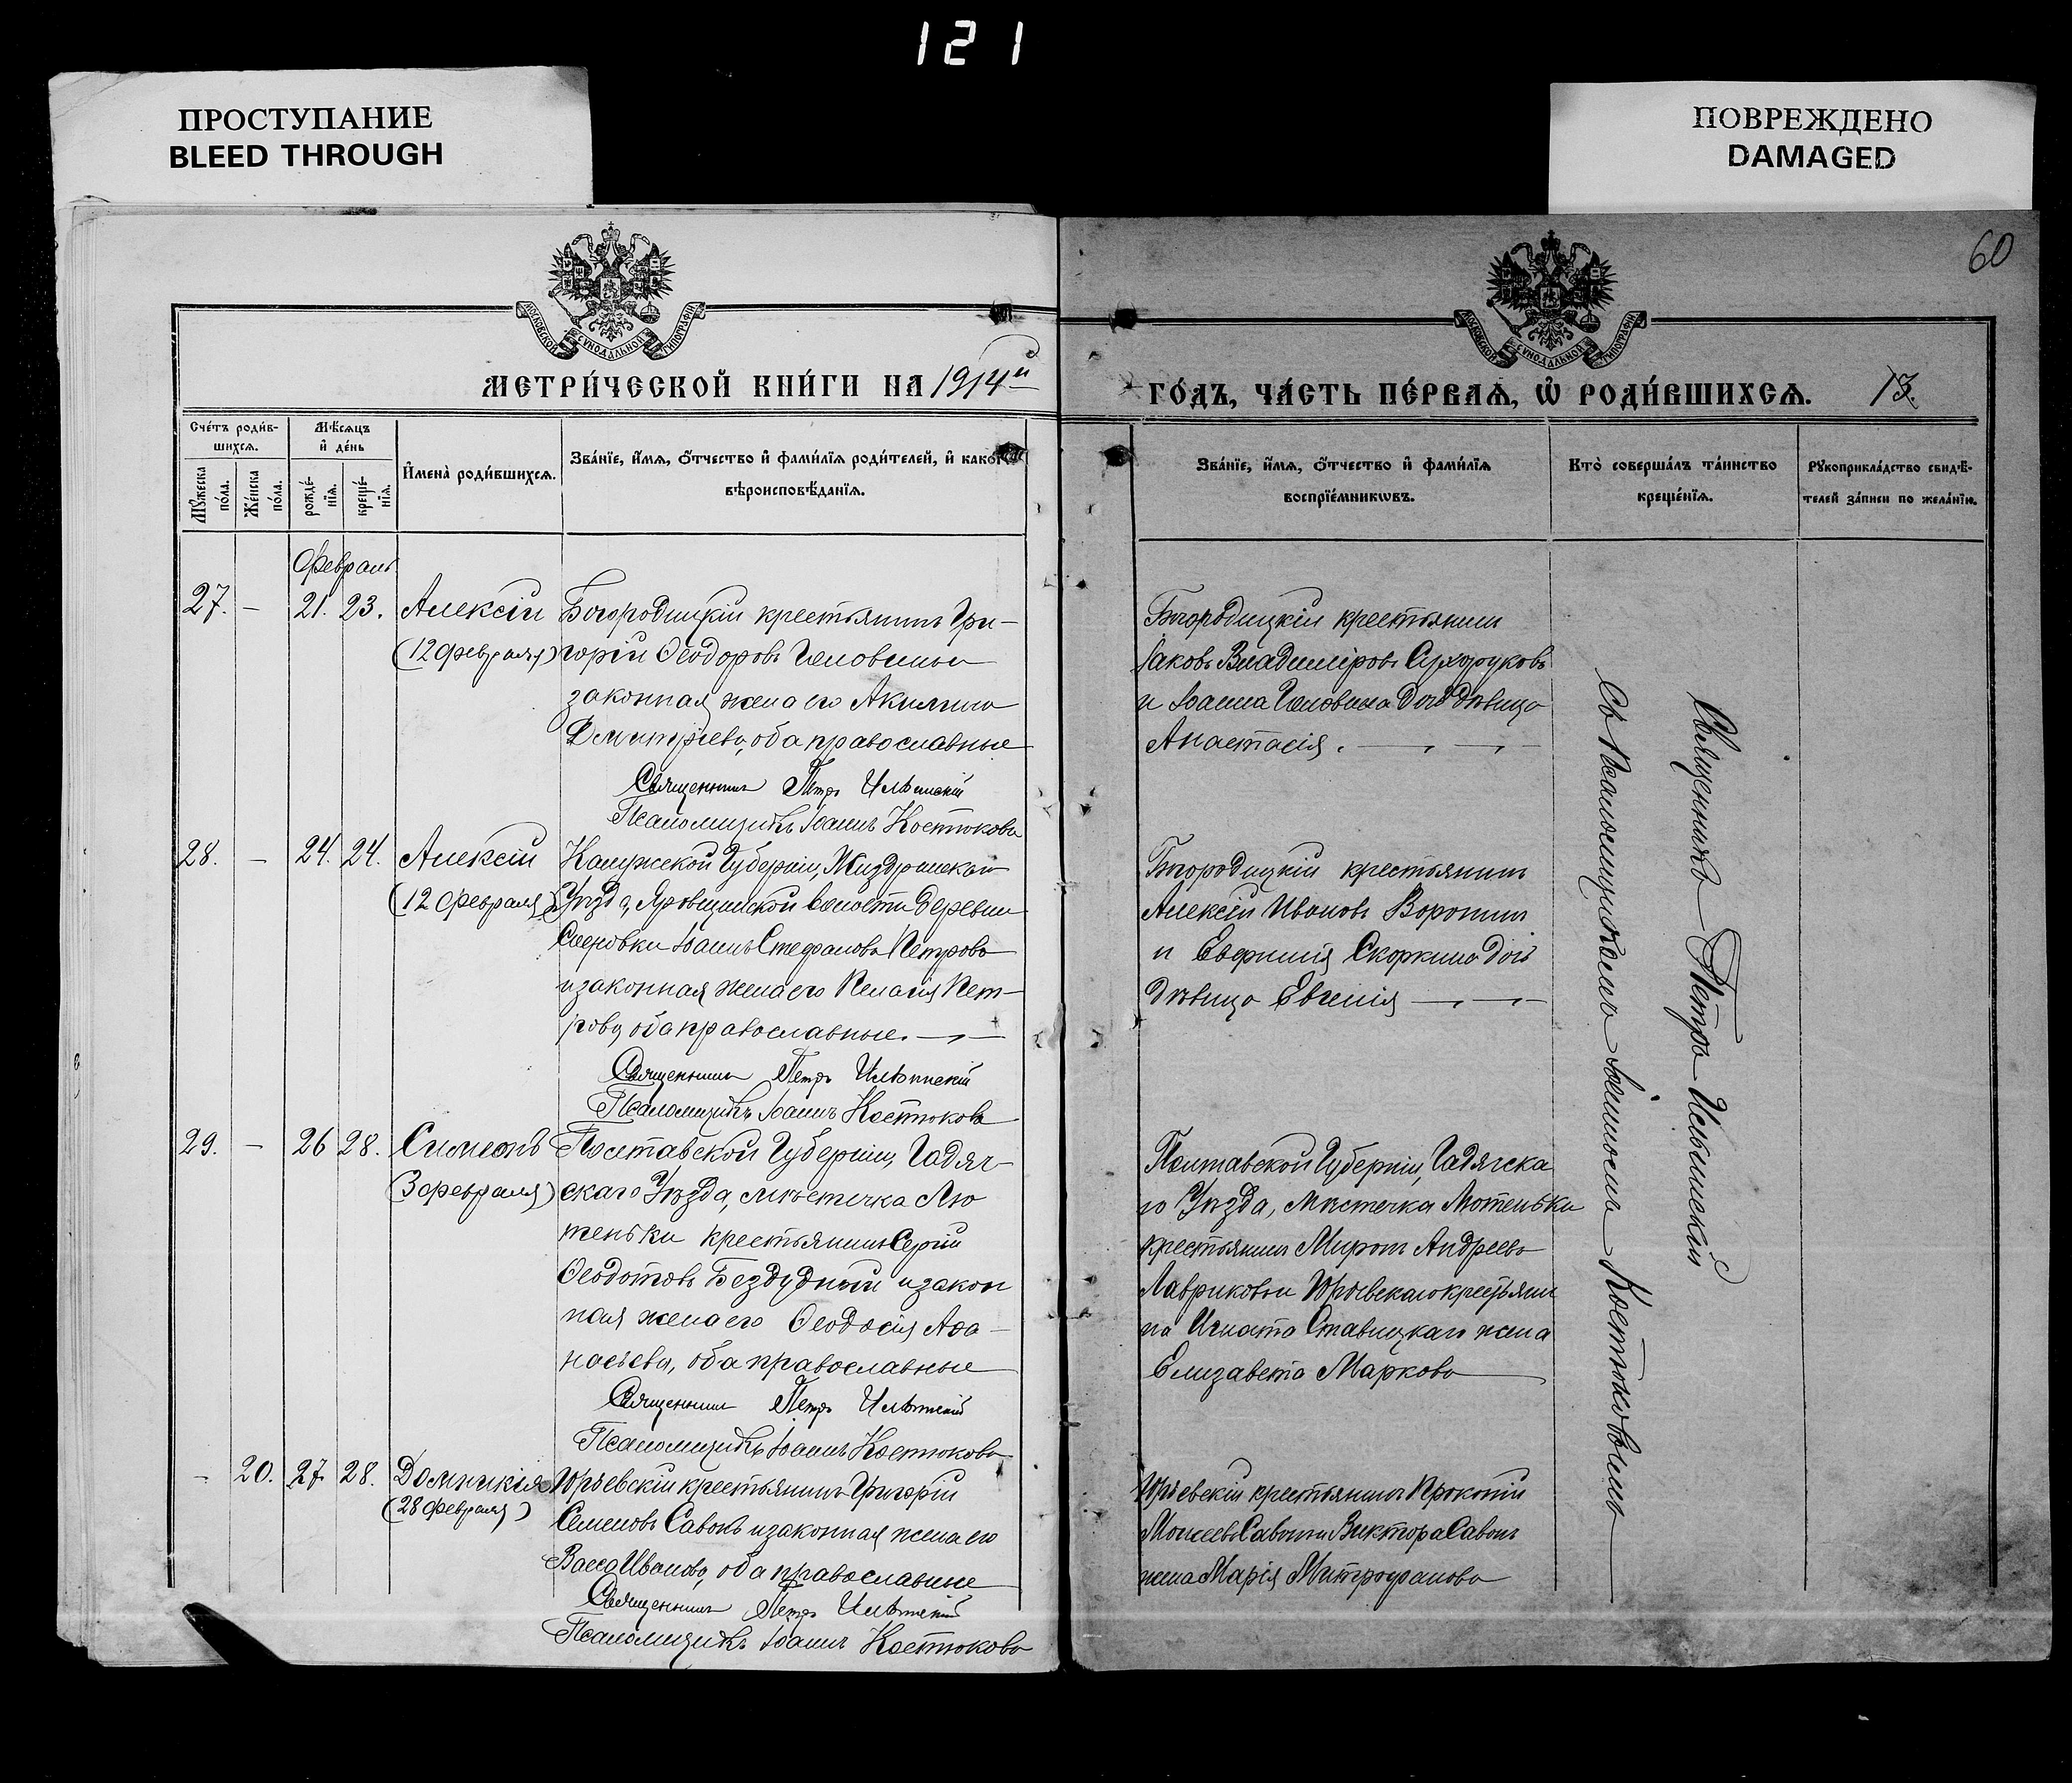 121
ПРОСТУПАНИЕ
BLEED THROUGH
ПОВРЕЖДЕНО
DAMAGED
60
МОСКОВСКОЙ СѴНОДАЛЬНОЙ ТИПОГРАФІИ
МОСКОВСКОЙ СѴНОДАЛЬНОЙ ТИПОГРАФІИ
МЕТРИ́ЧЕСКОЙ КНИ́ГИ НА 1914й
ГО́ДЪ, ЧА́СТЬ ПЕ́РВАѦ, Ѡ РОДИ́ВШИХСѦ. 13.
Сче́тъ роди́в-
шихсѧ.
Мѹжеска по́ла.
Же́нска по́ла.
Мѣ́сѧцъ
и҆ де́нь
рожде́-
нїѧ.
креще́-
нїѧ.
И҆мена̀ роди́вшихсѧ.
Зва́нїе, и҆́мѧ, ѻ҆́тчество и҆ фами́лїѧ роди́телей, и҆ како́гѡ
вѣроисповѣ́данїѧ.
Зва́нїе, и҆́мѧ, ѻ҆́тчество и҆ фами́лїѧ
воспрїе́мникѡвъ.
Кто̀ соверша́лъ та́инство
креще́нїѧ.
Рѹкоприкла́дство свидѣ́-
телей за́писи по жела́нїю.
Февраль
27. — 21. 23. Алексій Богородицкій крестьянинъ Гри-
(12 февраля) горій Ѳеодоровъ Головинъ и
законная жена его Акилина
Димитріева, оба православные
Священникъ Петръ Ильинскій
Псаломщикъ Іоаннъ Костюковъ
Богородицкій крестьянинъ
Іаковъ Владиміровъ Сухоруковъ
и Іоанна Головина дочь дѣвица
Анастасія.
28. — 24. 24. Алексій Калужской Губерніи, Жиздринскаго
(12 февраля) Уѣзда, волости деревни
Іоаннъ Стефановъ Петровъ
и законная жена его Пелагія Пет-
рова, оба православные.
Священникъ Петръ Ильинскій
Псаломщикъ Іоаннъ Костюковъ
Богородицкій крестьянинъ
Алексій Ивановъ Воронинъ
и Евфимія Скоркина дочь
дѣвица Евгенія
29. — 26 28. Симеонъ Полтавской Губерніи, Гадяч-
(3 февраля) скаго Уѣзда, мѣстечка Лю
теньки крестьянинъ Сергій
Ѳеодотовъ Бездудный и закон
ная жена его Ѳеодосія Аѳа-
насьева, оба православные
Священникъ Петръ Ильинскій
Псаломщикъ Іоаннъ Костюковъ
Полтавской Губерніи, Гадячска
го Уѣзда, мѣстечка Лютеньки
крестьянинъ Миронъ Андреевъ
Лавриковъ и Юрьевскаго крестьяни
на Игната Ставицкаго жена
Елизавета Маркова
— 20. 27. 28. Домникія Юрьевскій крестьянинъ Григорій
(28 февраля) Семеновъ Савонъ и законная жена его
Васса Иванова, оба православные
Священникъ Петръ Ильинскій
Псаломщикъ Іоаннъ Костюковъ
Юрьевскій крестьянинъ Прокопій
Моисеевъ Савонъ и Виктора Савонъ
жена Марія Митрофанова
Священникъ Петръ Ильинскій
Съ Псаломщикомъ Іоанномъ Костюковымъ